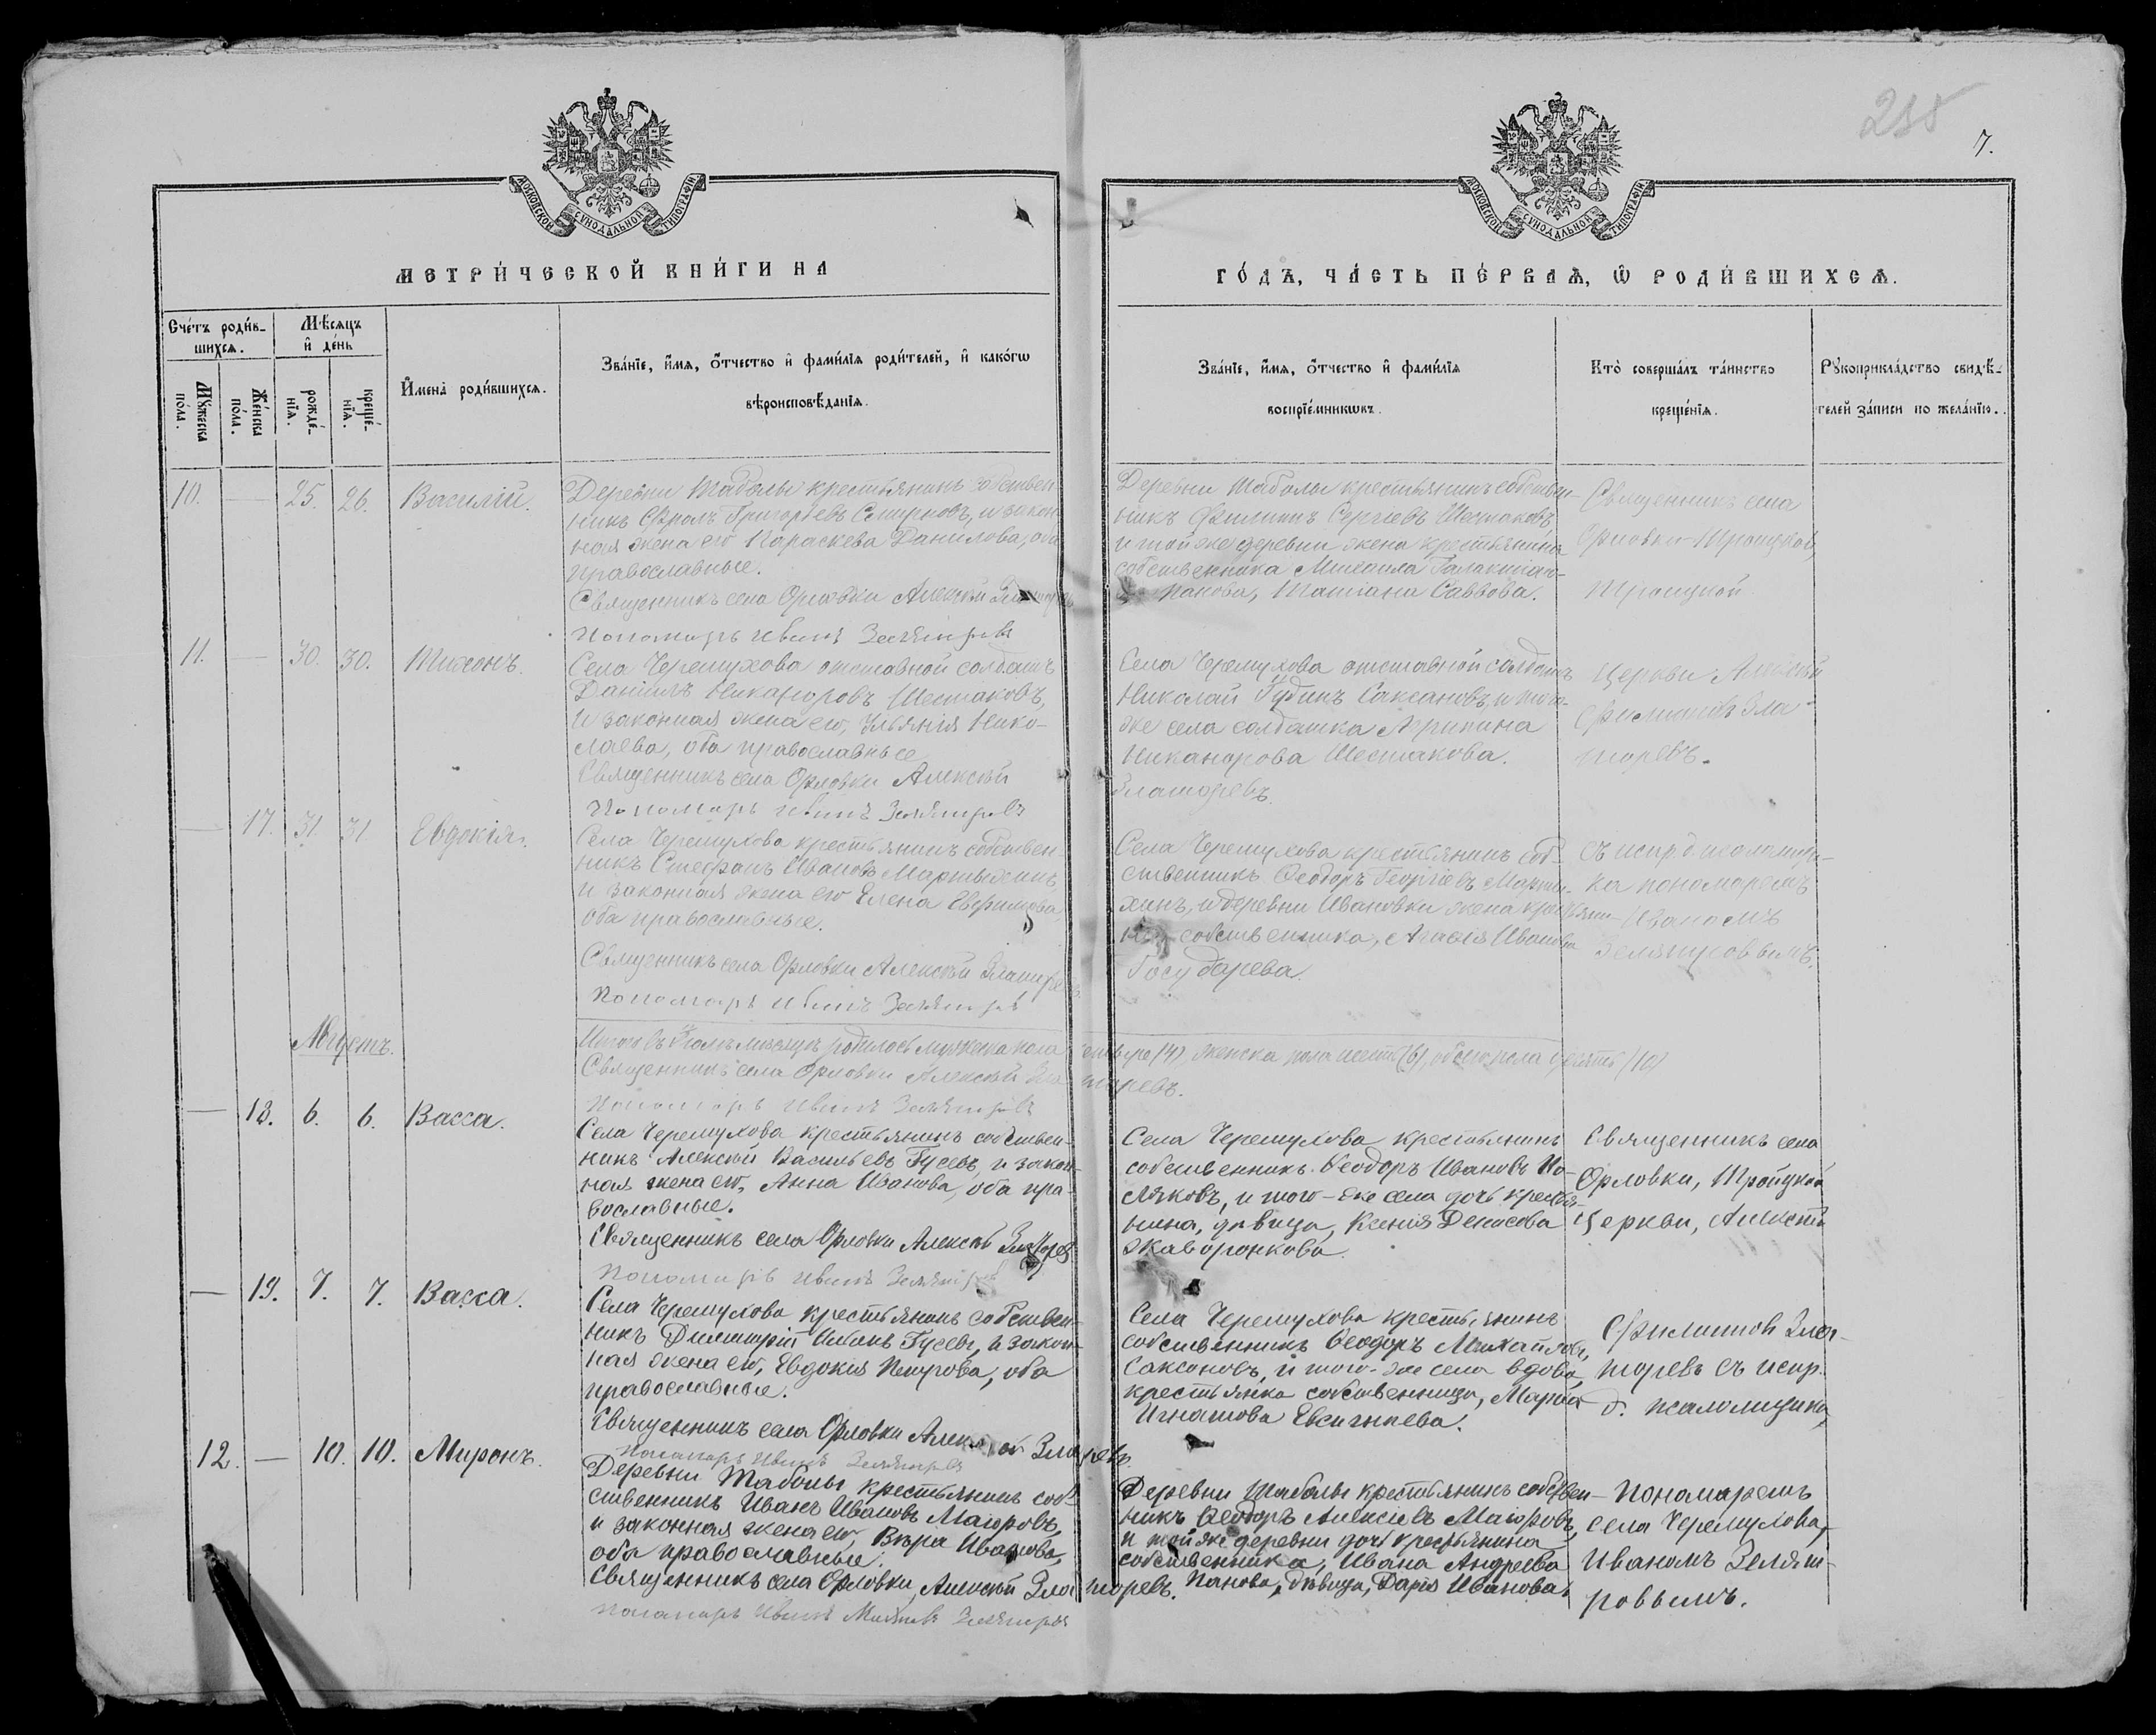 235
7.
МОСКОВСКОЙ СѴНОДАЛЬНОЙ ТИПОГРАФІИ
МОСКОВСКОЙ СѴНОДАЛЬНОЙ ТИПОГРАФІИ
МЕТРИ́ЧЕСКОЙ КНИ́ГИ НА
ГО́ДЪ, ЧА́СТЬ ПЕ́РВАѦ, Ѡ҆ РОДИ́ВШИХСѦ.
Сче́тъ роди́в-
шихсѧ.
Мꙋ́жеска по́ла.
Же́нска по́ла.
Мѣ́сѧцъ
и҆ де́нь
рожде́-
нїѧ.
креще́-
нїѧ.
И҆мена̀ роди́вшихсѧ.
Зва́нїе, и҆́мѧ, ѻ҆́тчество и҆ фами́лїѧ роди́телей, и҆ како́гѡ
вѣроисповѣ́данїѧ.
Зва́нїе, и҆́мѧ, ѻ҆́тчество и҆ фами́лїѧ
воспрїе́мникѡвъ.
Кто̀ соверша́лъ та́инство
креще́нїѧ.
Рꙋкоприкла́дство свидѣ́-
телей за́писи по жела́нїю.
10. — 25. 26. Василій.
Деревни Таболы крестьянинъ собствен-
никъ Фролъ Григорьевъ Смирновъ, и закон-
ная жена его Параскева Данилова, оба
православные.
Священникъ села Орловки Алексѣй Златоревъ
Пономарь Иванъ
Деревни Таболы крестьянинъ собствен-
никъ Филиппъ Сергѣевъ Шестаковъ,
и той же деревни жена крестьянина
собственника Михаила Галактіон-
Панова, Татіана Саввова.
Священникъ села
Орловки Троицкой,
Троицкой
11. — 30. 30. Тихонъ.
Села Черемухова отставной солдатъ
Даніилъ Никаноровъ Шестаковъ,
и законная жена его, Ульянія Нико-
лаева, оба православные
Священникъ села Орловки Алексѣй
Златоревъ.
Пономарь Иванъ
Села Черемухова отставной солдатъ
Николай Саксановъ, и того-
же села солдатка Агрипина
Никанорова Шестакова.
Церкви Алексѣй
Филиповъ Зла-
торевъ.
— 17. 31. 31 Евдокія.
Села Черемухова крестьянинъ собствен-
никъ Стефанъ Ивановъ Мартыхинъ,
и законная жена его Елена Евфимова,
оба православные.
Священникъ села Орловки Алексѣй Златоревъ.
Пономарь Иванъ
Села Черемухова крестьянинъ соб-
ственникъ Ѳеодоръ Георгіевъ Марты-
хинъ, и деревни Ивановки жена крестьяни-
на собственника, Агафія Иванова
Государева.
съ испр. д. псаломщи-
ка пономаремъ
Иваномъ
Августъ.
Итого въ Іюлѣ мѣсяцѣ родилось мужеска пола четыре (4), женска пола шесть (6), обоего пола десять (10)
Священникъ села Орловки Алексѣй Златоревъ.
Пономарь Иванъ
— 18. 6. 6. Васса.
Села Черемухова крестьянинъ собствен-
никъ Алексѣй Васильевъ Гусевъ, и закон-
ная жена его, Анна Иванова, оба пра-
вославные.
Священникъ села Орловки Алексѣй Златоревъ
Пономарь Иванъ
Села Черемухова крестьянинъ
собственникъ Ѳеодоръ Ивановъ По-
ляковъ, и того-же села дочь крестья-
нина, дѣвица, Ксенія Денисова
Жаворонкова.
Священникъ села
Орловки, Троицкой
церкви, Алексѣй
— 19. 7. 7. Васса.
Села Черемухова крестьянинъ собствен-
никъ Димитрій Ивановъ Гусевъ, и закон-
ная жена его, Евдокія Петрова, оба
православные.
Священникъ села Орловки Алексѣй Златоревъ.
Пономарь Иванъ
Села Черемухова крестьянинъ
собственникъ Ѳеодоръ Михайловъ,
Саксоновъ, и того-же села вдова,
крестьянка собственница, Марѳа
Игнатова Евсигнеева.
Филиповъ Зла-
торевъ съ испр.
д. псаломщика,
12. — 10. 10. Миронъ.
Деревни Таболы крестьянинъ соб-
ственникъ Иванъ Ивановъ Маіоровъ,
и законная жена его, Вѣра Иванова,
оба православные.
Священникъ села Орловки, Алексѣй Златоревъ.
Пономарь Иванъ
Деревни Таболы крестьянинъ собствен-
никъ Ѳеодоръ Алексѣевъ Маіоровъ,
и той же деревни дочь крестьянина
собственника, Ивана Андреева
Панова, дѣвица, Дарія Иванова.
Пономаремъ
села Черемухова,
Иваномъ Земят-
ровымъ.